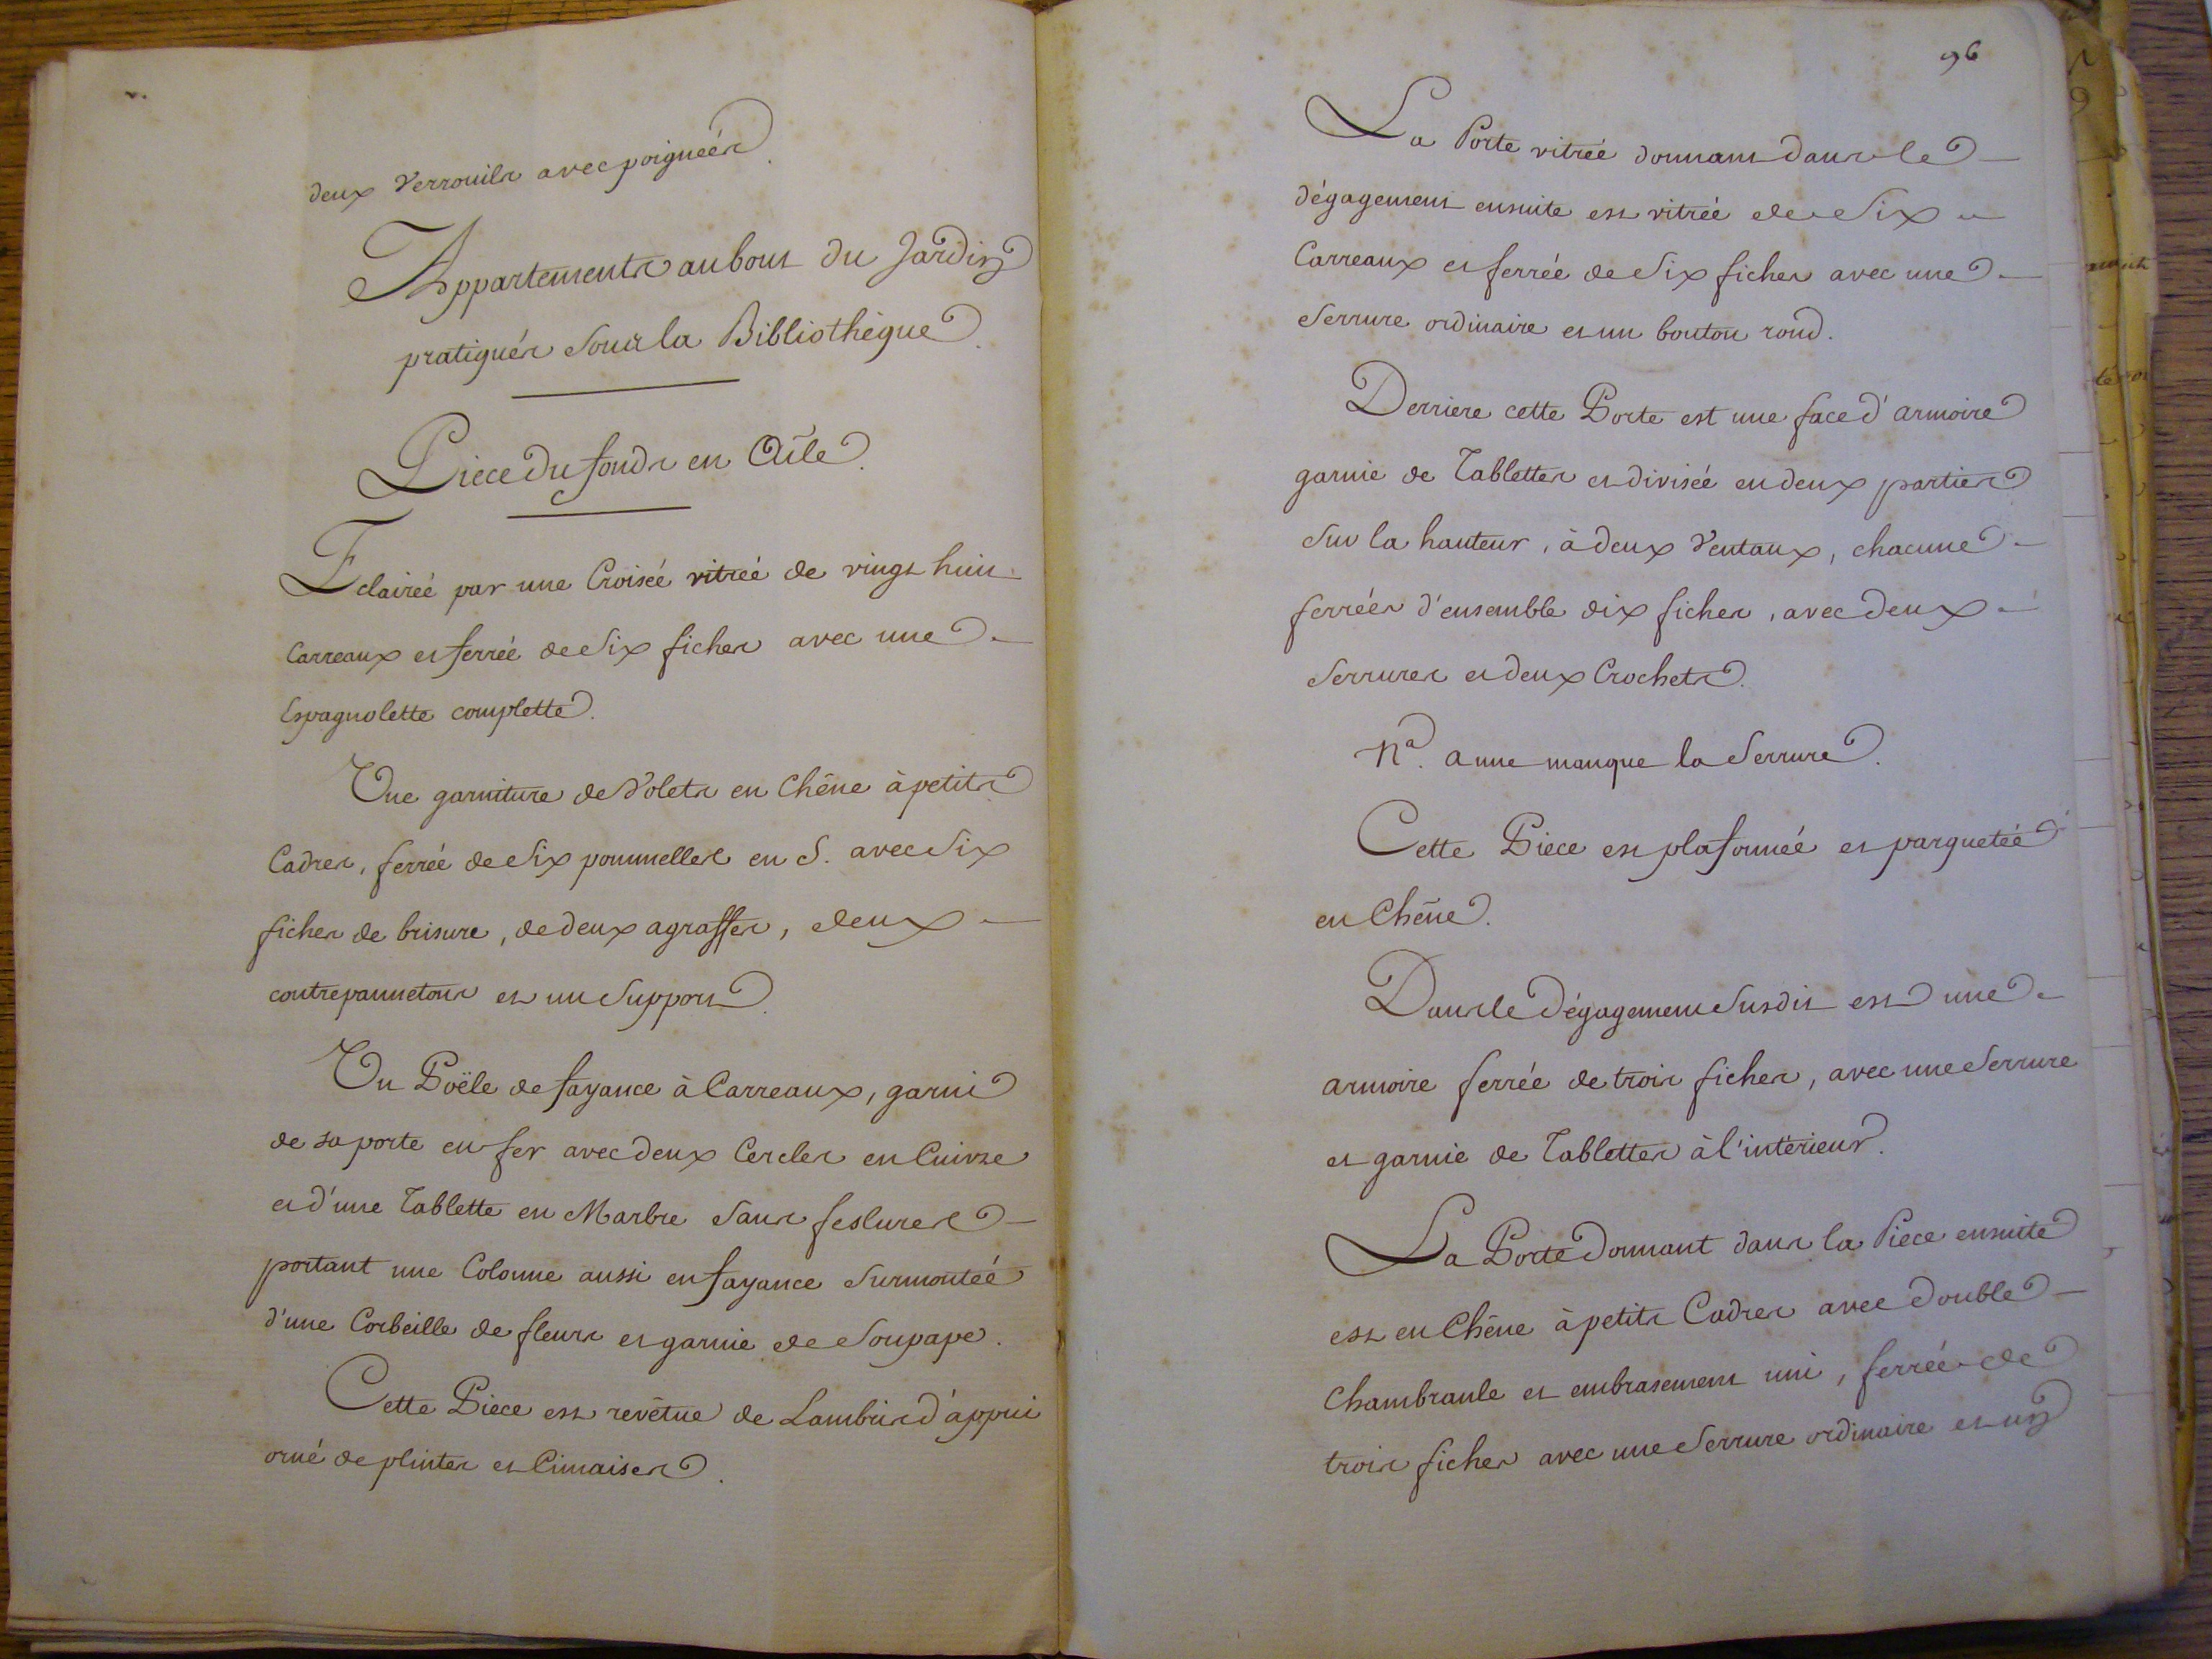 deux Verrouils avec poignéés.
Appartements au bout du Jardin
pratiqués sous la Bibliothéque.
Piece du fonds en Aîle.
Eclairéé par une Croiséé vitréé de vingt huit
Carreaux et ferréé de Six fiches avec une
Espagnolette complette.
Une garniture de Volets en Chêne à petits
Cadres, ferréé de Six poummelles en S. avec Six
fiches de brisure, de deux agraffes, deux
contrepannetons et un Support.
Un Poële de fayance à Carreaux, garni
de sa porte en fer avec deux Cercles en Cuivre
et d'une Tablette en Marbre Sans feslures
portant une Colonne aussi en fayance Surmontéé
d'une Corbeille de fleurs et garnie de Soupape.
Cette Piece est revêtue de Lambris d'appui
orné de plintes et Cimaises.
96
La Porte vitréé donnant dans le
dégagement ensuite est vitréé de Six
Carreaux et ferréé de Six fiches avec une
Serrure ordinaire et un bouton rond.
Derriere cette Porte est une face d'armoire
garnie de Tablettes et diviséé en deux parties
Sur la hauteur, à deux Ventaux, chacune
ferréés d'ensemble dix fiches, avec deux
Serrures et deux Crochets.
Na. a une manque la Serrure.
Cette Piece est plafonnéé et parquetéé
en Chêne.
Dans le dégagement Susdit est une
armoire ferréé de trois fiches, avec une Serrure
et garnie de Tablettes à l'intérieur.
La Porte donnant dans la Piece ensuite
est en Chêne à petits Cadres avec double
Chambranle et embrasement uni, ferréé de
trois fiches avec une Serrure ordinaire et un